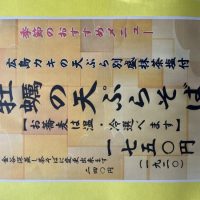 季節のおすすめメニュー
広島カキの天ぷら別盛抹茶塩付
牡蠣の天ぷらそば
【お蕎麦は温・冷選べます】
一七五〇円
(一九二〇)
二四〇円